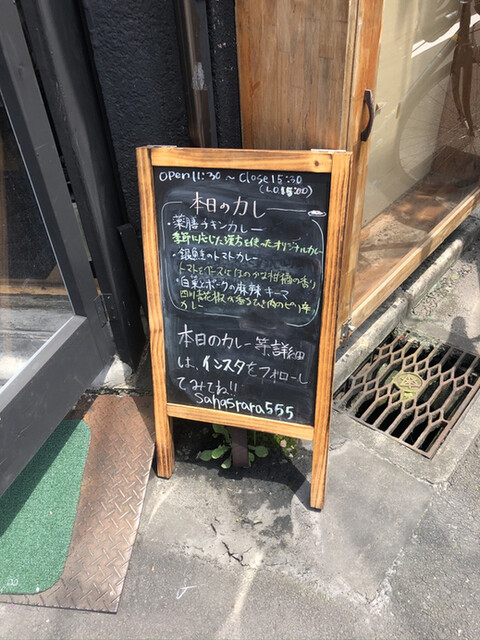 open 11:30 ~ close 15:30
(L.O 15:00)
本日のカレー
・薬膳チキンカレー
季節に応じた漢方を使ったオリジナルカレー
・銀魚のトマトカレー
トマトをベースにほのかな柑橘の香り
・白菜とポークの麻辣キーマ
四川花椒が香るひき肉のピリ辛
カレー
本日のカレー等、詳細
は、インスタをフォローし
てみてね!!
sahasrara555